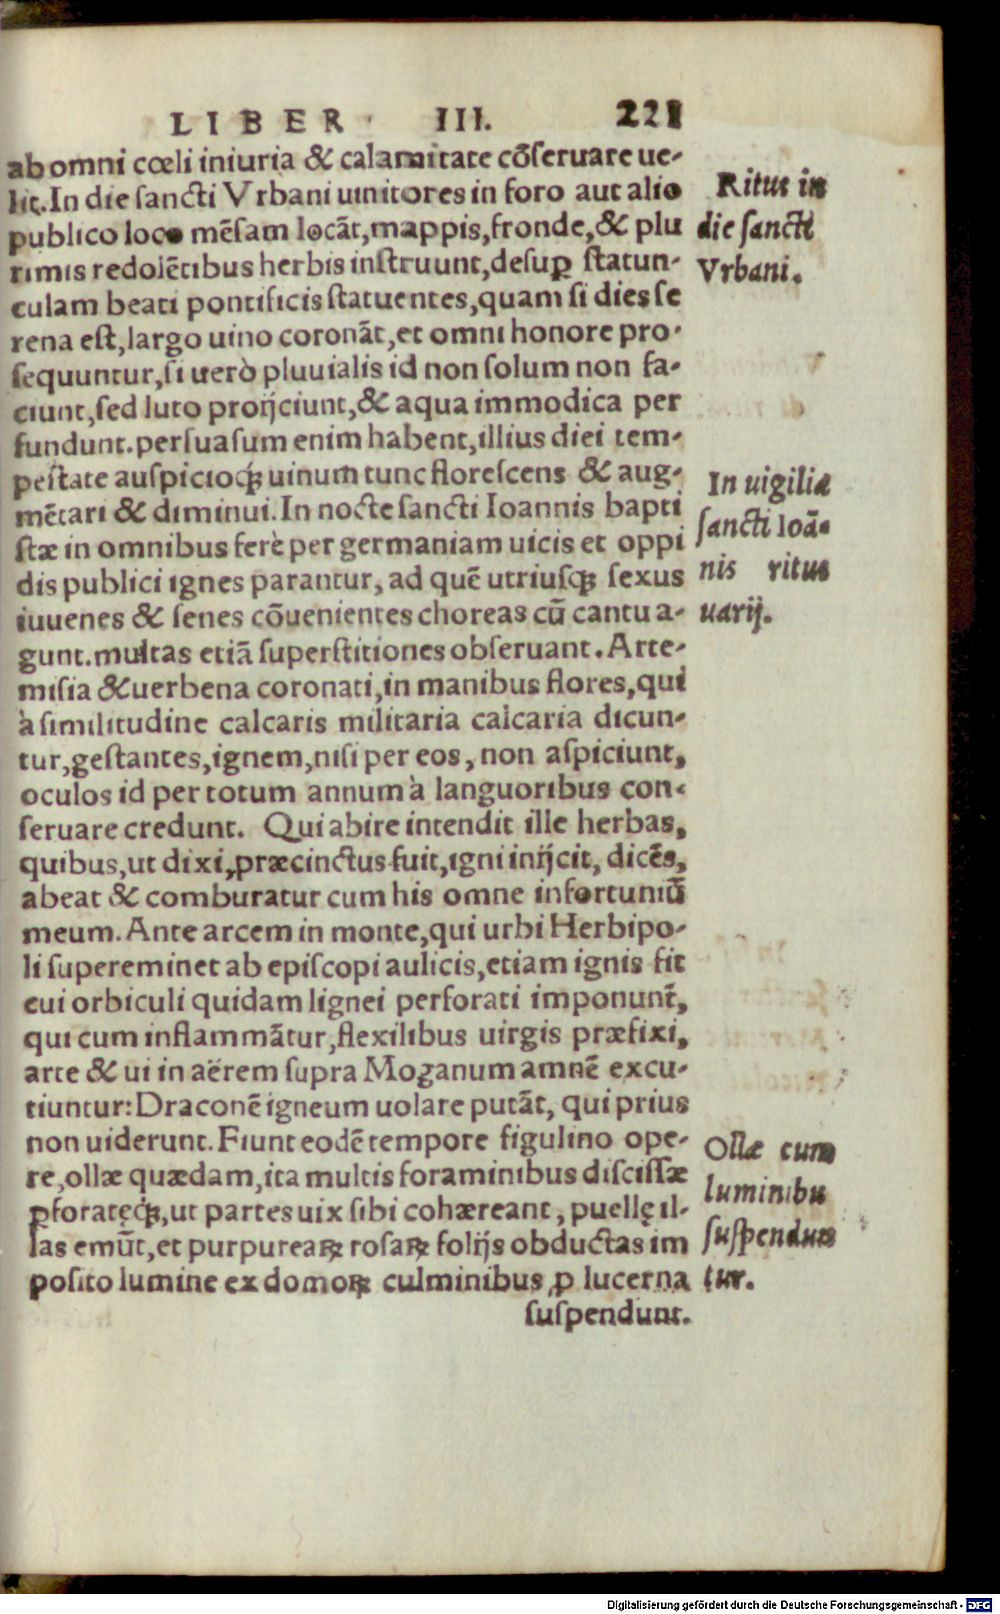 LIBER III. 221
ab omni cœli iniuria & calamitate cōseruare ue-
lit. In die sancti Vrbani uinitores in foro aut alio
publico loco mēsam locāt, mappis, fronde, & plu
rimis redolētibus herbis instruunt, desuꝑ statun-
culam beati pontificis statuentes, quam si dies se
rena est, largo uino coronāt, et omni honore pro-
sequuntur, si uerò pluuialis id non solum non fa-
ciunt, sed luto proijciunt, & aqua immodica per
fundunt. persuasum enim habent, illius diei tem-
pestate auspicioq́ꝫ uinum tunc florescens & aug-
mētari & diminui. In nocte sancti Ioannis bapti
stæ in omnibus ferè per germaniam uicis et oppi
dis publici ignes parantur, ad quē utriusqꝫ sexus
iuuenes & senes cōuenientes choreas cū cantu a-
gunt. multas etiā superstitiones obseruant. Arte-
misia & uerbena coronati, in manibus flores, qui
à similitudine calcaris militaria calcaria dicun-
tur, gestantes, ignem, nisi per eos, non aspiciunt,
oculos id per totum annum à languoribus con-
seruare credunt. Qui abire intendit ille herbas,
quibus, ut dixi, præcinctus fuit, igni inijcit, dicēs,
abeat & comburatur cum his omne infortuniū
meum. Ante arcem in monte, qui urbi Herbipo-
li supereminet ab episcopi aulicis, etiam ignis fit
cui orbiculi quidam lignei perforati imponunt̄,
qui cum inflammātur, flexilibus uirgis præfixi,
arte & ui in aërem supra Moganum amnē excu-
tiuntur: Draconē igneum uolare putāt, qui prius
non uiderunt. Fiunt eodē tempore figulino ope-
re, ollæ quædam, ita multis foraminibus discissæ
ꝑforatęq́ꝫ, ut partes uix sibi cohæreant, puellę il-
las emūt, et purpureaꝝ rosaꝝ folijs obductas im
posito lumine ex domoꝝ culminibus, ꝓ lucerna
suspendunt.
Ritus in
die sancti
Vrbani.
In uigilia
sancti Ioā-
nis ritus
uarij.
Ollæ cum
luminibu
suspendun
tur.
Digitalisierung gefördert durch die Deutsche Forschungsgemeinschaft - DFG